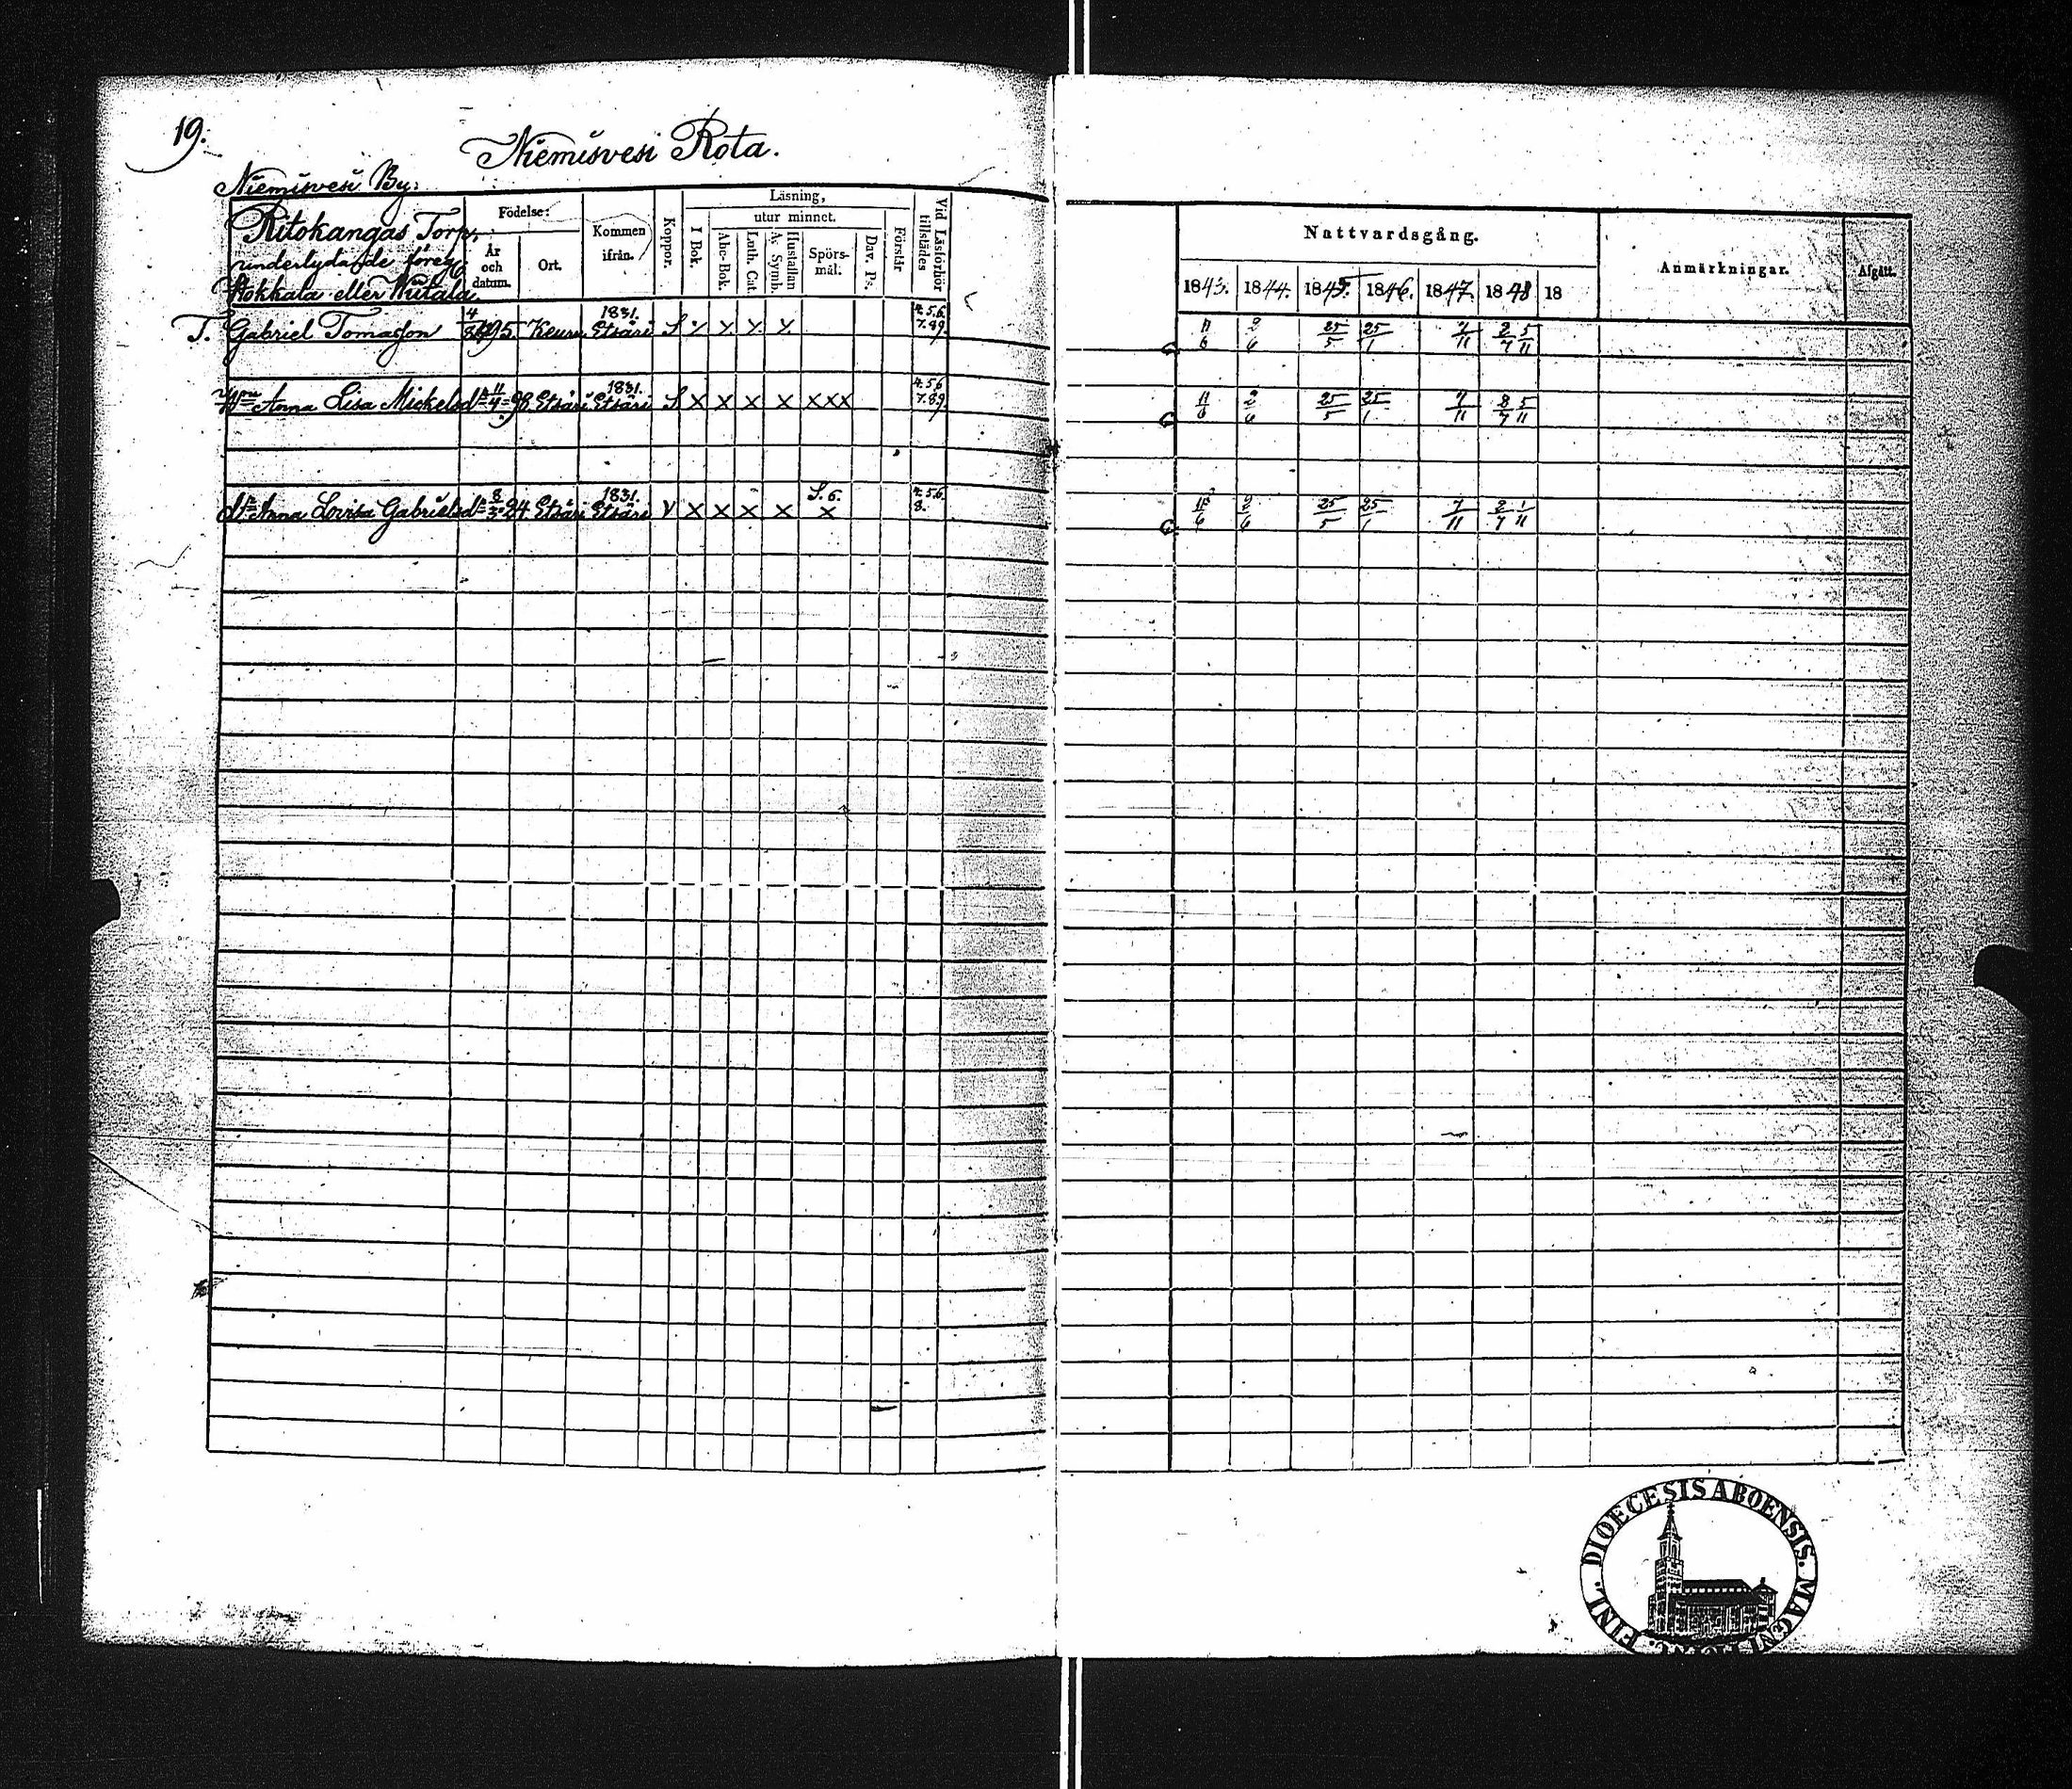 19.
Niemisvesi Rota.
Niemisvesi By.
Ritokangas Torp,
underlydande föreg.
Kokkala eller
Födelse:
År och datum.
Ort.
Kommen ifrån.
Koppor.
Läsning,
I Bok.
utur minnet.
Abc-Bok.
Luth. Cat.
Hustaflan A. Symb.
Spörsmål.
Dav. Ps.
Förstår
Vid Läsförhör tillstädes
Nattvardsgång.
1843. 1844. 1845. 1846. 1847. 1848 18
Anmärkningar.
Afgått.
T. Gabriel Tomasson 95. Keuru 1831. Etsäri S 4.5.6. 7.8.9. 11/6 2/6 25/5 25/1 7/11 2/7 5/11
Anna Lisa Mickelsdr 11/4 98 Etsäri 1831. Etsäri S X X X X XXX 4.5.6 7.8.9. 11/6 2/6 25/5 25/1 7/11 8/7 5/11
Anna Lovisa Gabrielsdr 24 Etsäri 1831. Etsäri V X X X X S. 6. X 4.5.6. 8. 2/6 25/5 25/1 7/11 2/7 1/11
FINL. DIOECESIS ABOENSIS. MAGNI